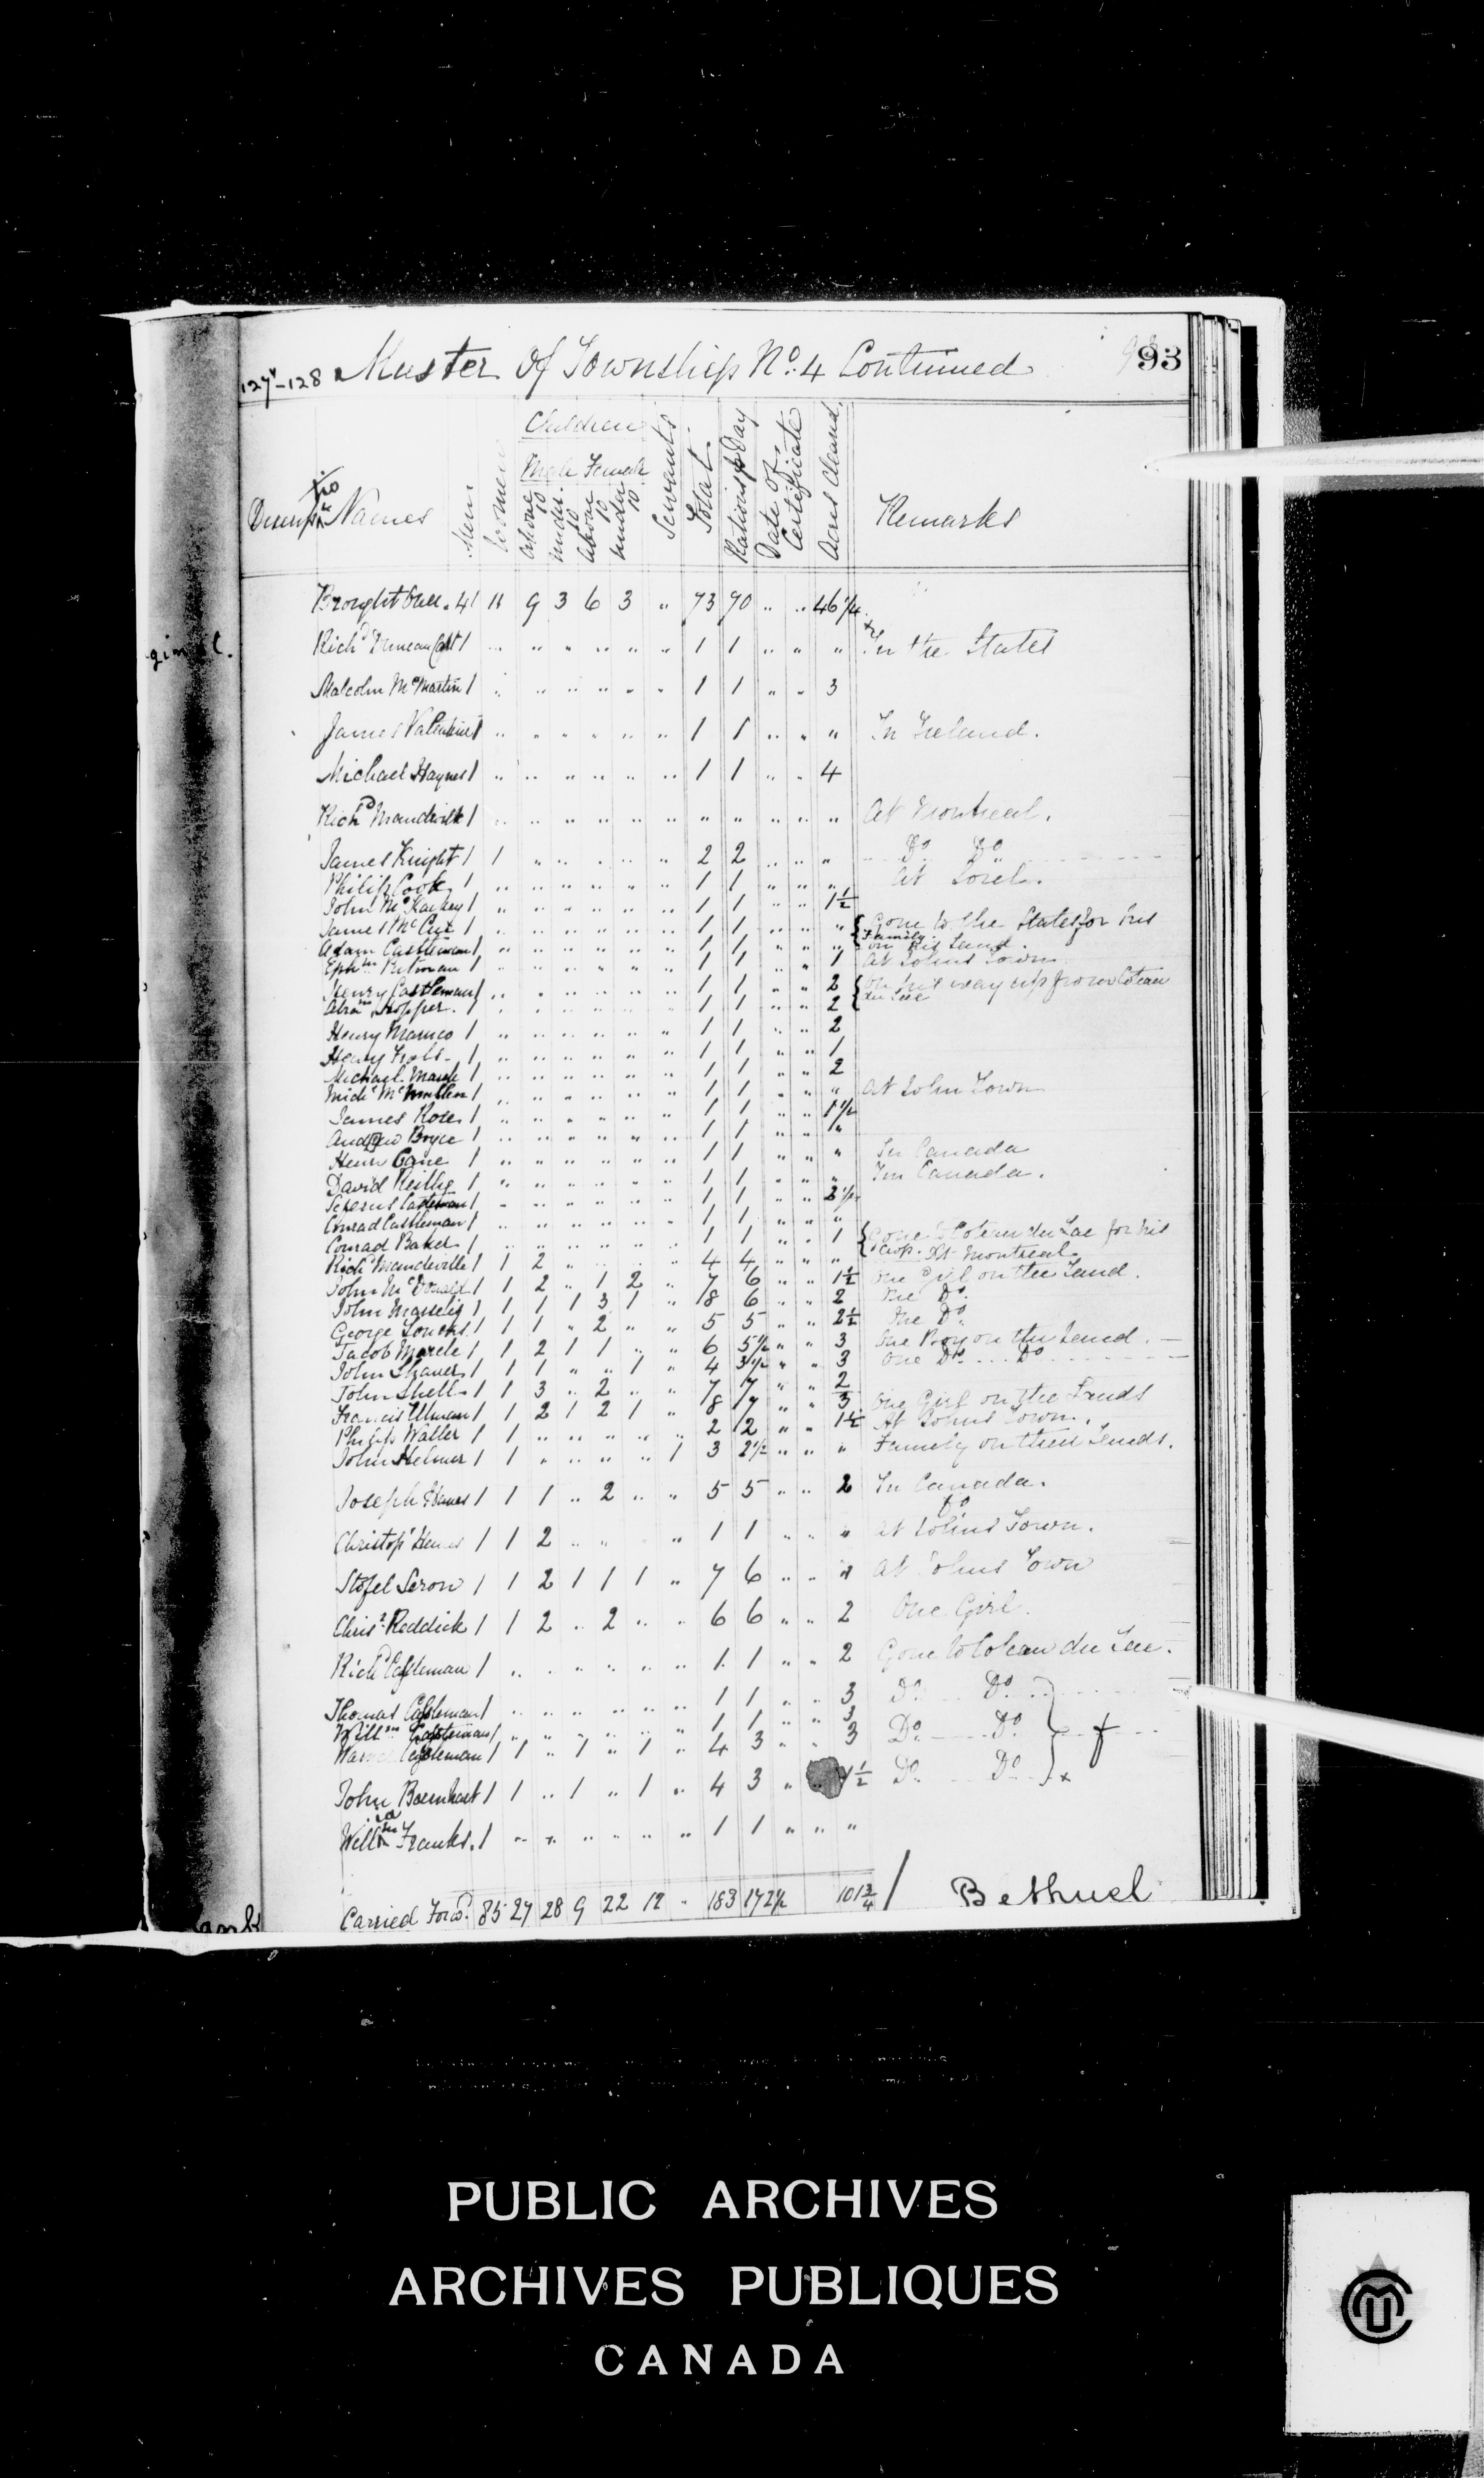 93
127v-128 Muster Of Township No. 4 Continued
Children
Male Female
Names Men Women above 10 under 10 above 10 under 10 Servants Total Rations pr Day Date of Certificate Acres Cleared Remarks
Brought Over 41 11 9 3 6 3 " 73 70 " " 46 1/4
Richd Duncan Capt 1 " " " " " " 1 1 " " " In the States
Malcolm McMartin 1 " " " " " " 1 1 " " 3
James Valentine 1 " " " " " " 1 1 " " " In Ireland.
Michael Haynes 1 " " " " " " 1 1 " " 4
Richd Mandeville 1 " " " " " " " " " " " At Montreal.
James Knight 1 1 " " " " " 2 2 " " " Do Do
Philip Cook 1 " " " " " " 1 1 " " " At Sorel.
John 1 " " " " " " 1 1 " " 1 1/2
James 1 " " " " " " 1 1 " " " Gone to the States for his Family.
Adam Castleman 1 " " " " " " 1 1 " " " on his Land.
Ephm Pitman 1 " " " " " " 1 1 " " 1 At Johns Town
Henry Castleman 1 " " " " " " 1 1 " " 2 On his way up from Coteau du Lac
Abrm Hopper. 1 " " " " " " 1 1 " " 2
Henry 1 " " " " " " 1 1 " " 2
Henry 1 " " " " " " 1 1 " " 1
Michael 1 " " " " " " 1 1 " " 2
Michl McMullen 1 " " " " " " 1 1 " " " At John Town
James Rose 1 " " " " " " 1 1 " " 1 1/2
Andrew Bryce 1 " " " " " " 1 1 " " "
Henr Cane 1 " " " " " " 1 1 " " " In Canada
David Reilly 1 " " " " " " 1 1 " " " In Canada.
Castleman 1 " " " " " " 1 1 " " 2 1/2
Conrad Castleman 1 " " " " " " 1 1 " " "
Conrad Baker 1 " " " " " " 1 1 " " 1 Gone to Coteau du Lac for his Crop.
Richd Mandeville 1 1 2 " " " " 4 4 " " " At Montreal
John McDonald 1 1 2 " 1 2 " 7 6 " " 1 1/2 One Girl on the Land.
John 1 1 1 1 3 1 " 8 6 " " 2 One Do.
George 1 1 1 " 2 " " 5 5 " " 2 1/2 One Do.
Jacob Marcle 1 1 2 1 1 " " 6 5 1/2 " " 3 One Boy on the Land.
John Shaver 1 1 1 " " 1 " 4 3 1/2 " " 3 One Do. Do
John Shell 1 1 3 " 2 " " 7 7 " " 2
Francis Ulman 1 1 2 1 2 1 " 8 7 " " 3 One Girl on the Lands
Philip Walter 1 1 " " " " " 2 2 " " 1 1/2 At Johns Town.
John Helmer 1 1 " " " " 1 3 2 1/2 " " " Family on their Lands.
Joseph Hanes 1 1 1 " 2 " " 5 5 " " 2 In Canada.
Do
Christop 1 1 2 " " " 1 1 " " " At Johns Town.
Stofel Seron 1 1 2 1 1 1 " 7 6 " " " At Johns Town
Chrisr Reddick 1 1 2 " 2 " " 6 6 " " 2 One Girl.
Richd Castleman 1 " " " " " " 1 1 " " 2 Gone to Coteau du Lac.
Thomas Castleman 1 " " " " " " 1 1 " " 3 Do. Do
Willm Castleman 1 " " " " " " 1 1 " " 3
Castleman 1 1 " 1 " 1 " 4 3 " " 3 Do. Do
John Barnhart 1 1 " 1 " 1 " 4 3 " " 4 1/2 Do. Do
Willm Franks. 1 " " " " " " 1 1 " " "
Carried Forwd. 85 27 28 9 22 12 " 183 172 1/2 101 3/4 Bethuel
PUBLIC ARCHIVES
ARCHIVES PUBLIQUES
CANADA